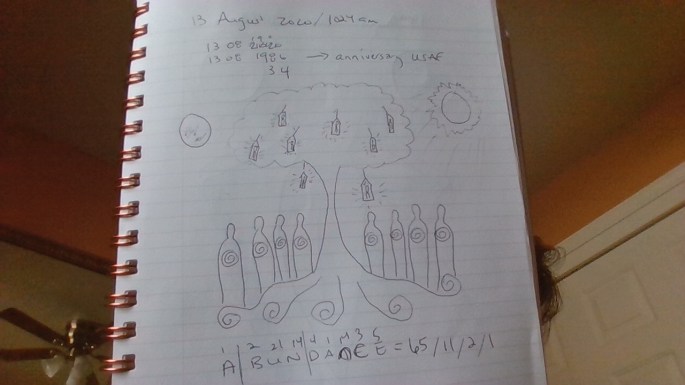 13 August 2020/1024 am
13 08 2020
13 08 1986 → anniversary USAF
34
1 2 21 14 4 1 14 3 5
A|BUN|DANCE = 65/11/2/1